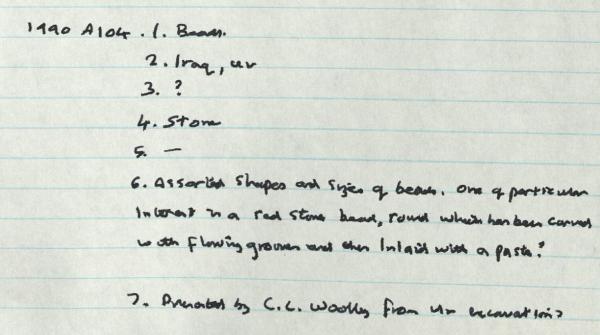 1990 A104. 1. Beads.
2. Iraq, Ur
3. ?
4. Stone
5. —
6. Assorted shapes and sizes of beads. One of particular
interest is a red stone bead, round which has been carved
with flowing grooves and then inlaid with a paste?
7. Presented by C.L. Woolley from Ur excavations